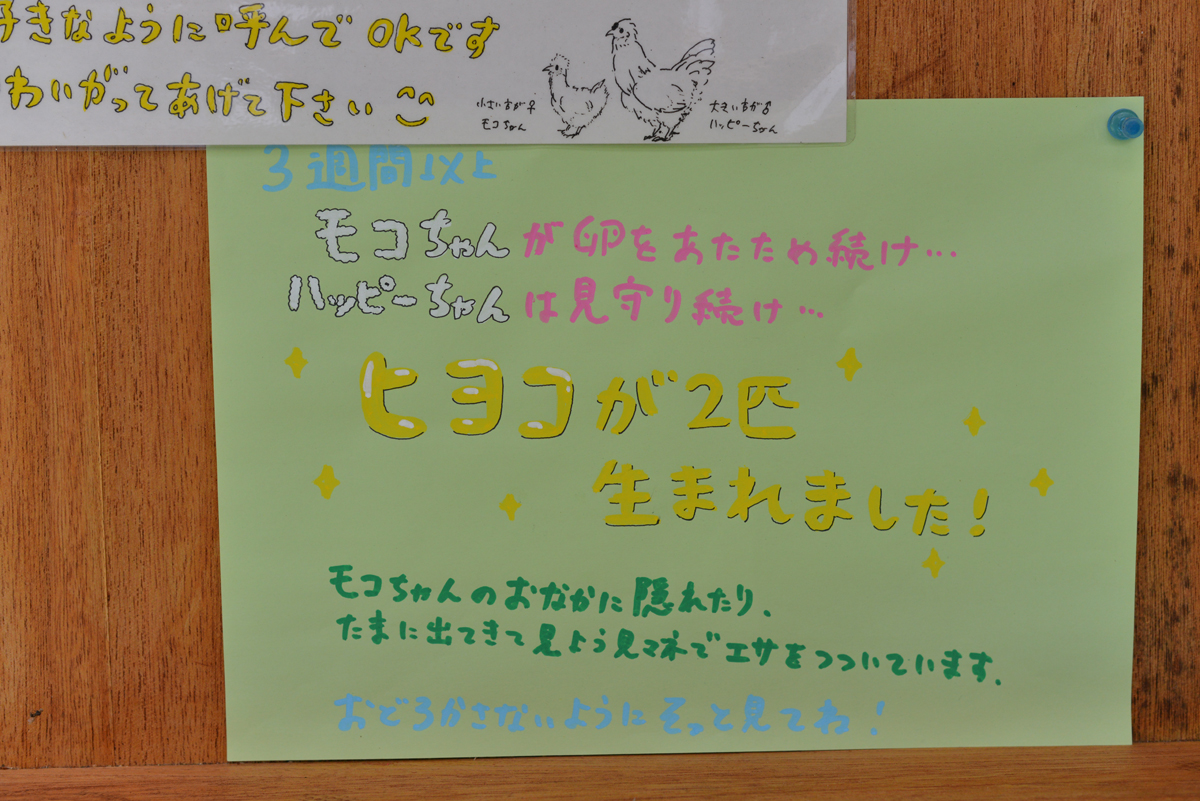 好きなように呼んでOKです
わいがってあげて下さい
小さい方が♀
モコちゃん
大きい方が♂
ハッピーちゃん
3週間以上
モコちゃんが卵をあたため続け…
ハッピーちゃんは見守り続け…
ヒヨコが2匹
生まれました!
モコちゃんのおなかに隠れたり、
たまに出てきて見よう見マネでエサをつついています。
おどろかさないようにそっと見てね!